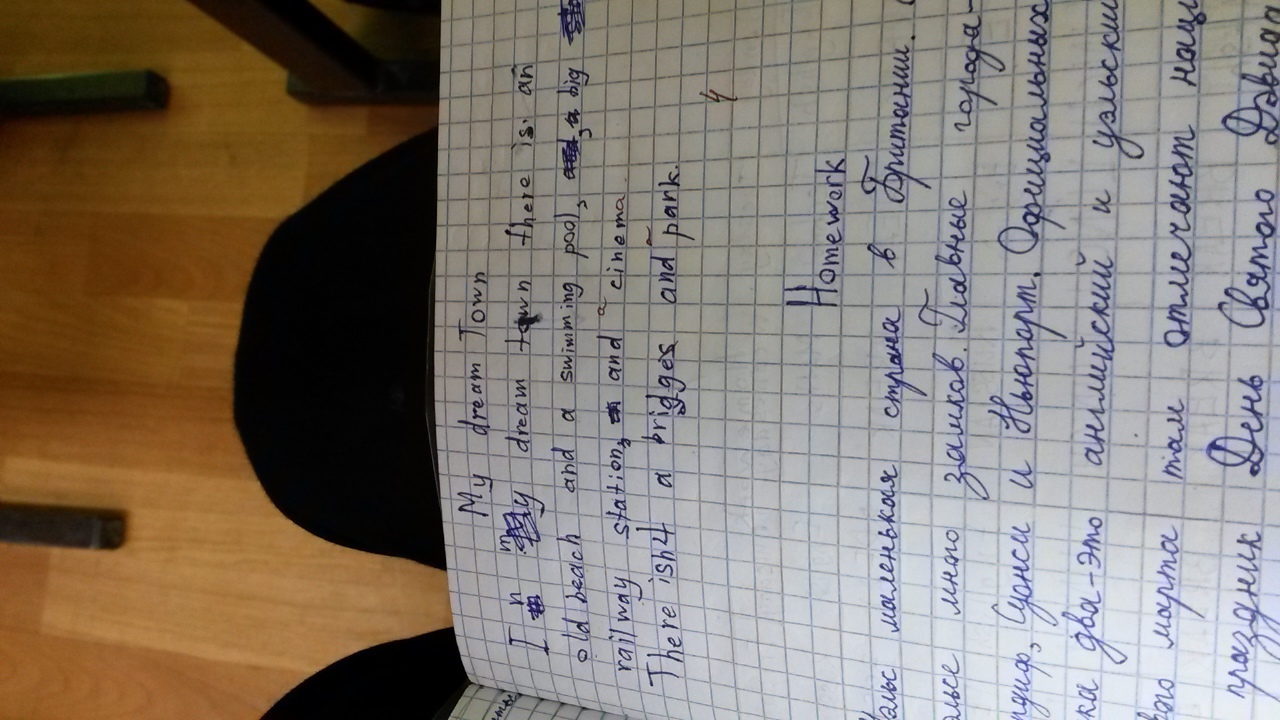 My dream Town
In my dream town there is an
old beach and a swimming pool, a big
railway station, and a cinema.
There isn4 a brigges and park.
4
Homework
маленькая страна в Британии.
много замков. Главные города-
Суонси и Ньюпорт. Официальных
два-это английский и уэльский
марта там отмечают наци
праздник День Святого Дэвида